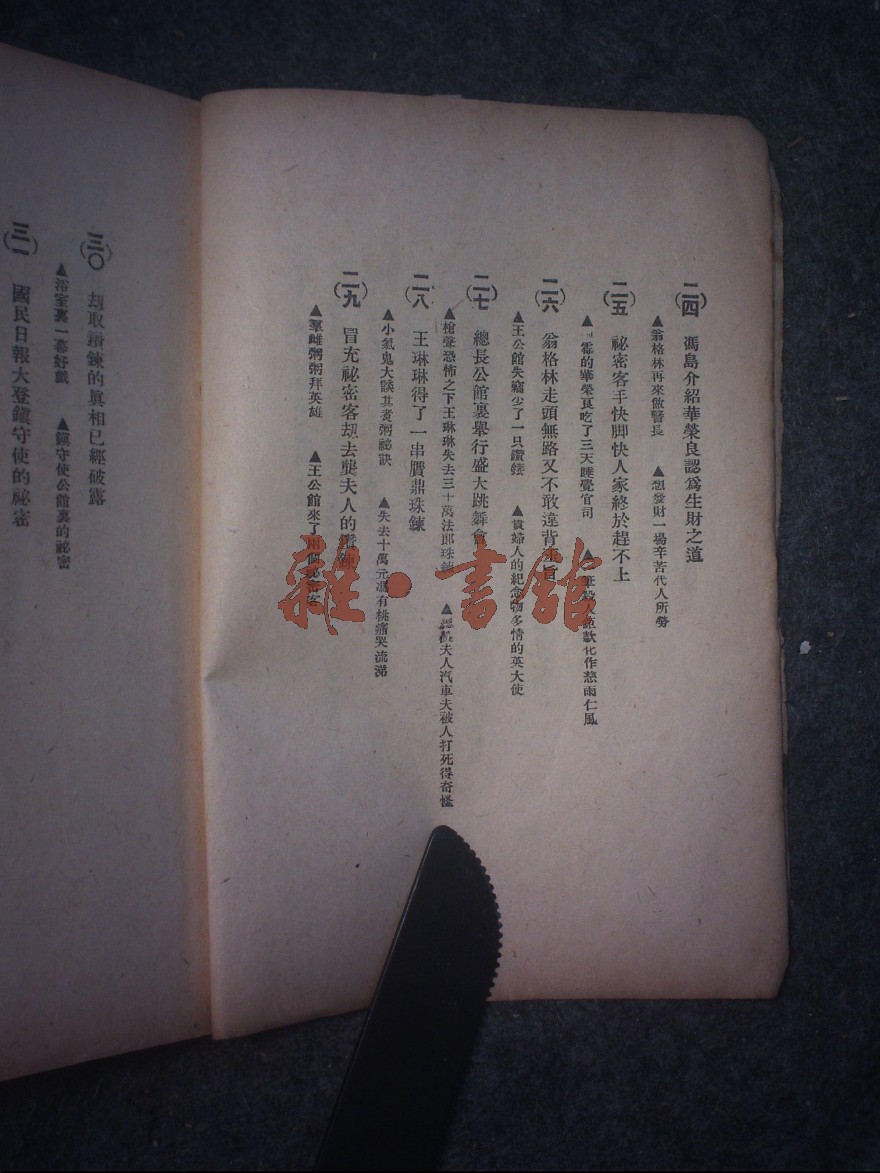 (二四) 馮島介紹華榮良認爲生財之道
▲翁格林再來做警長 ▲想發財一場辛苦代人所勞
(二五) 祕密客手快脚快人家終於趕不上
的畢榮良吃了三天睡覺官司 化作慈雨仁風
(二六) 翁格林走頭無路又不敢違背
▲王公館失竊少了一只鑽錶 ▲貴婦人的紀念物多情的英大使
(二七) 總長公館裏舉行盛大跳舞會
▲槍聲恐怖之下王琳琳失去三十萬法郎珠鍊 ▲夫人汽車夫被人打死得奇怪
(二八) 王琳琳得了一串贋鼎珠鍊
▲小氣鬼大談其賓粥祕訣 ▲失去十萬元馮有桃痛哭流涕
(二九) 冒充祕密客刧去龔夫人的鑽鍊
▲羣雌粥粥拜英雄 ▲王公館來了兩個祕密客
(三〇) 刧取鑽鍊的眞相已經破露
▲浴室裏一幕好戲 ▲鎭守使公館裏的祕密
(三一) 國民日報大登鎭守使的祕密
雜·書館